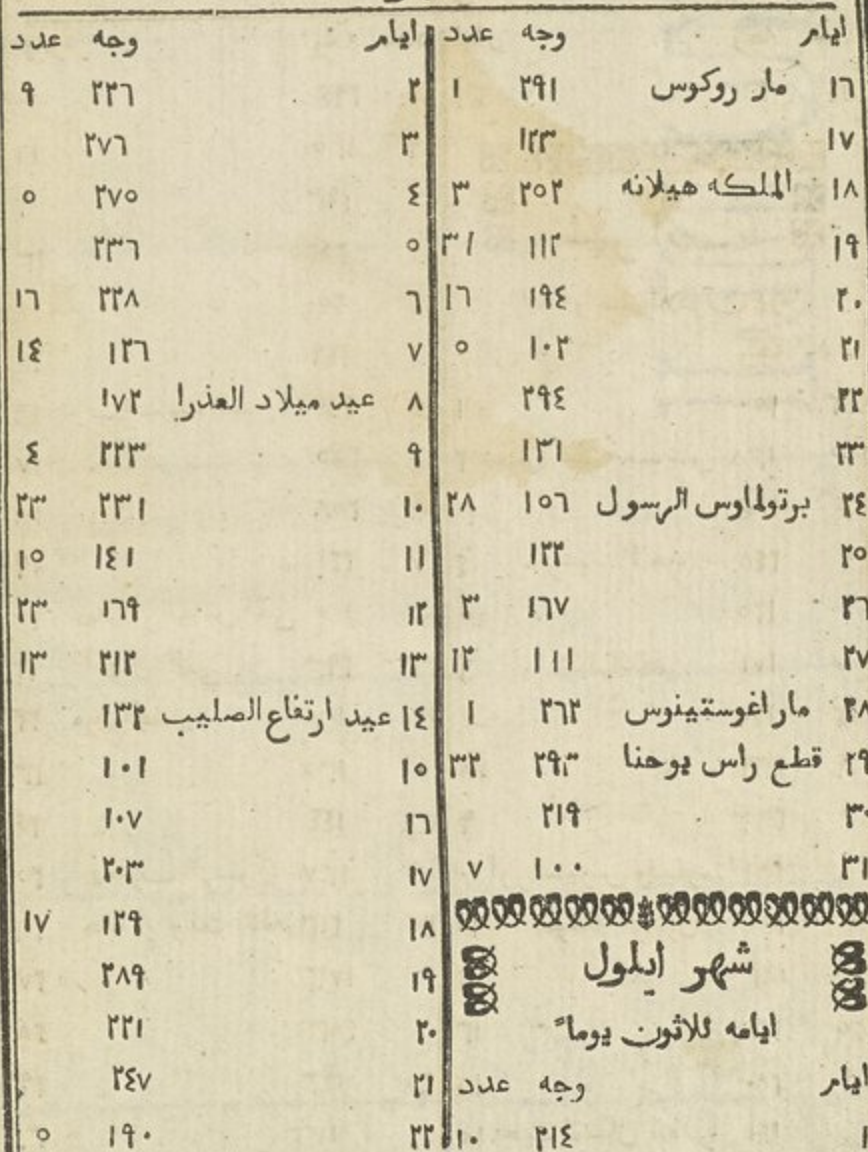 ايام وجه عدد
١٦ مار روكوس ٢٩١ ١
١٧ ١٢٣
١٨ الملكه هيلانه ٢٥٢ ٣
١٩ ١١٢ ٣١
٢٠ ١٩٤ ١٦
٢١ ١٠٢ ٥
٢٢ ٢٩٤
٢٣ ١٣١
٢٤ برتولماوس الرسول ١٥٦ ٢٨
٢٥ ١٢٢
٢٦ ١٦٧ ٣
٢٧ ١١١ ١٢
٢٨ مار اغوستينوس ٢٦٢ ١
٢٩ قطع راس يوحنا ٢٩٣ ٣٢
٣٠ ٢١٩
٣١ ١٠٠ ٧
شهر ايلول
ايامه ثلاثون يوماً
ايام وجه عدد
١ ٢١٤ ١٠
ايام وجه عدد
٢ ٢٢٦ ٩
٣ ٢٧٦
٤ ٢٧٥ ٥
٥ ٢٣٦
٦ ٢٢٨ ١٦
٧ ١٢٦ ١٤
٨ عيد ميلاد العذرا ١٧٢
٩ ٢٢٣ ٤
١٠ ٢٣١ ٢٣
١١ ١٤١ ١٥
١٢ ١٦٩ ٢٣
١٣ ٢١٢ ١٣
١٤ عيد ارتفاع الصليب ١٣٢
١٥ ١٠١
١٦ ١٠٧
١٧ ٢٠٣
١٨ ١٢٩ ١٧
١٩ ٢٨٩
٢٠ ٢٢١
٢١ ٢٤٧
٢٢ ١٩٠ ٥